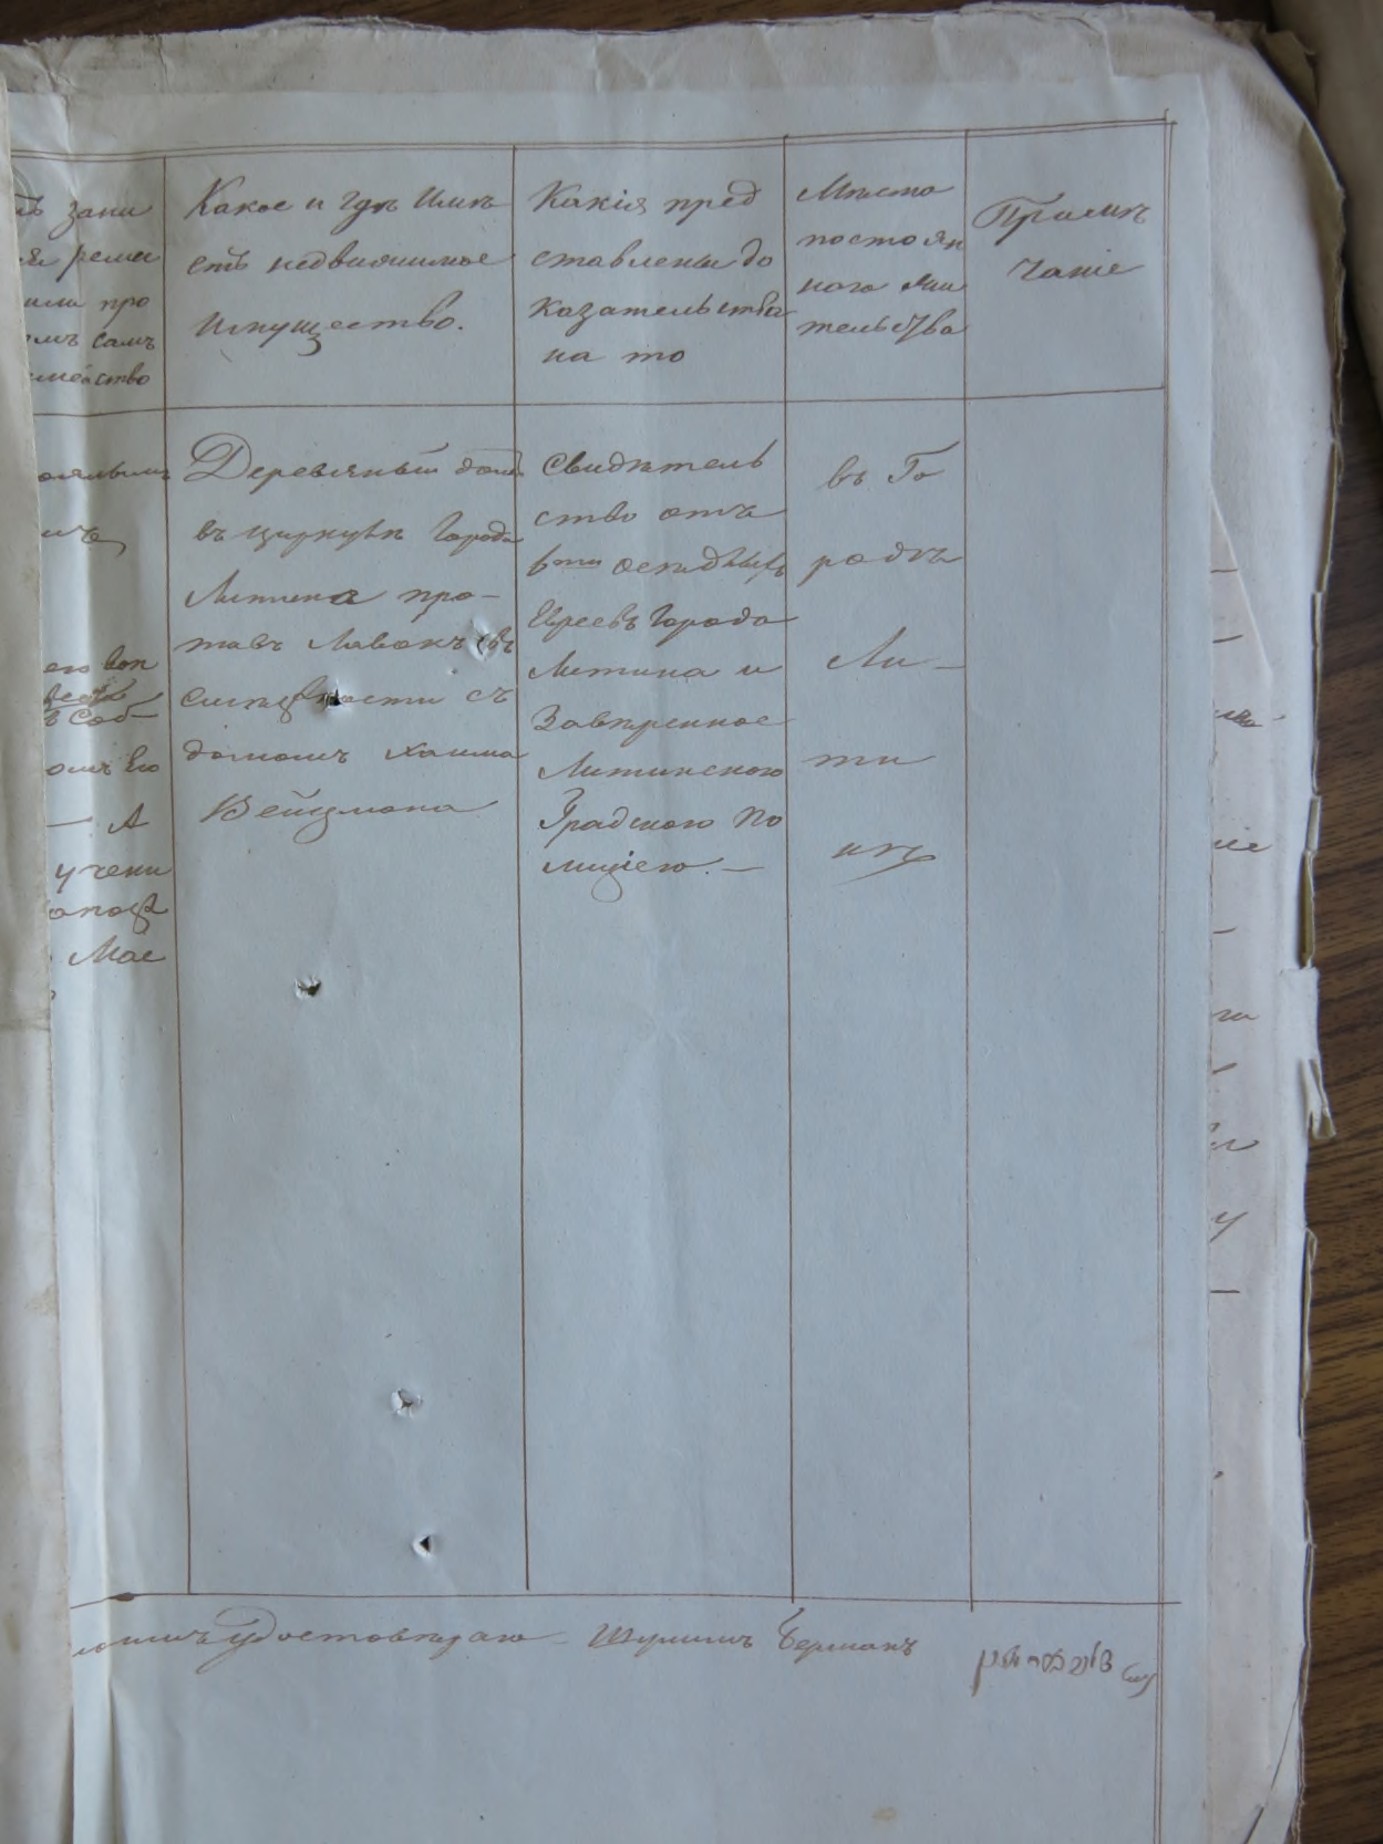 зани
реме
или про
омъ самъ
мейство
Какое и гдѣ имѣ
етъ недвижимое
имущество.
Какія пред
ставлены до
казательства
на то
Мѣсто
постоян
наго жи
тельства
Примѣ
чаніе
его
Соб
омъ Его
— А
учени
Мае
Деревяный домъ
въ циркулѣ Города
Литина про-
тивъ Лавокъ въ
смѣжности съ
домомъ Хаима
Вейцмана
Свидѣтель
ство отъ
6ти осѣдлыхъ
Евреевъ Города
Литина и
Завѣренное
Литинскою
Градскою По
лиціею. —
въ Го
родѣ
Ли-
ти
нѣ
удостовѣряю – Шулимъ Берманъ